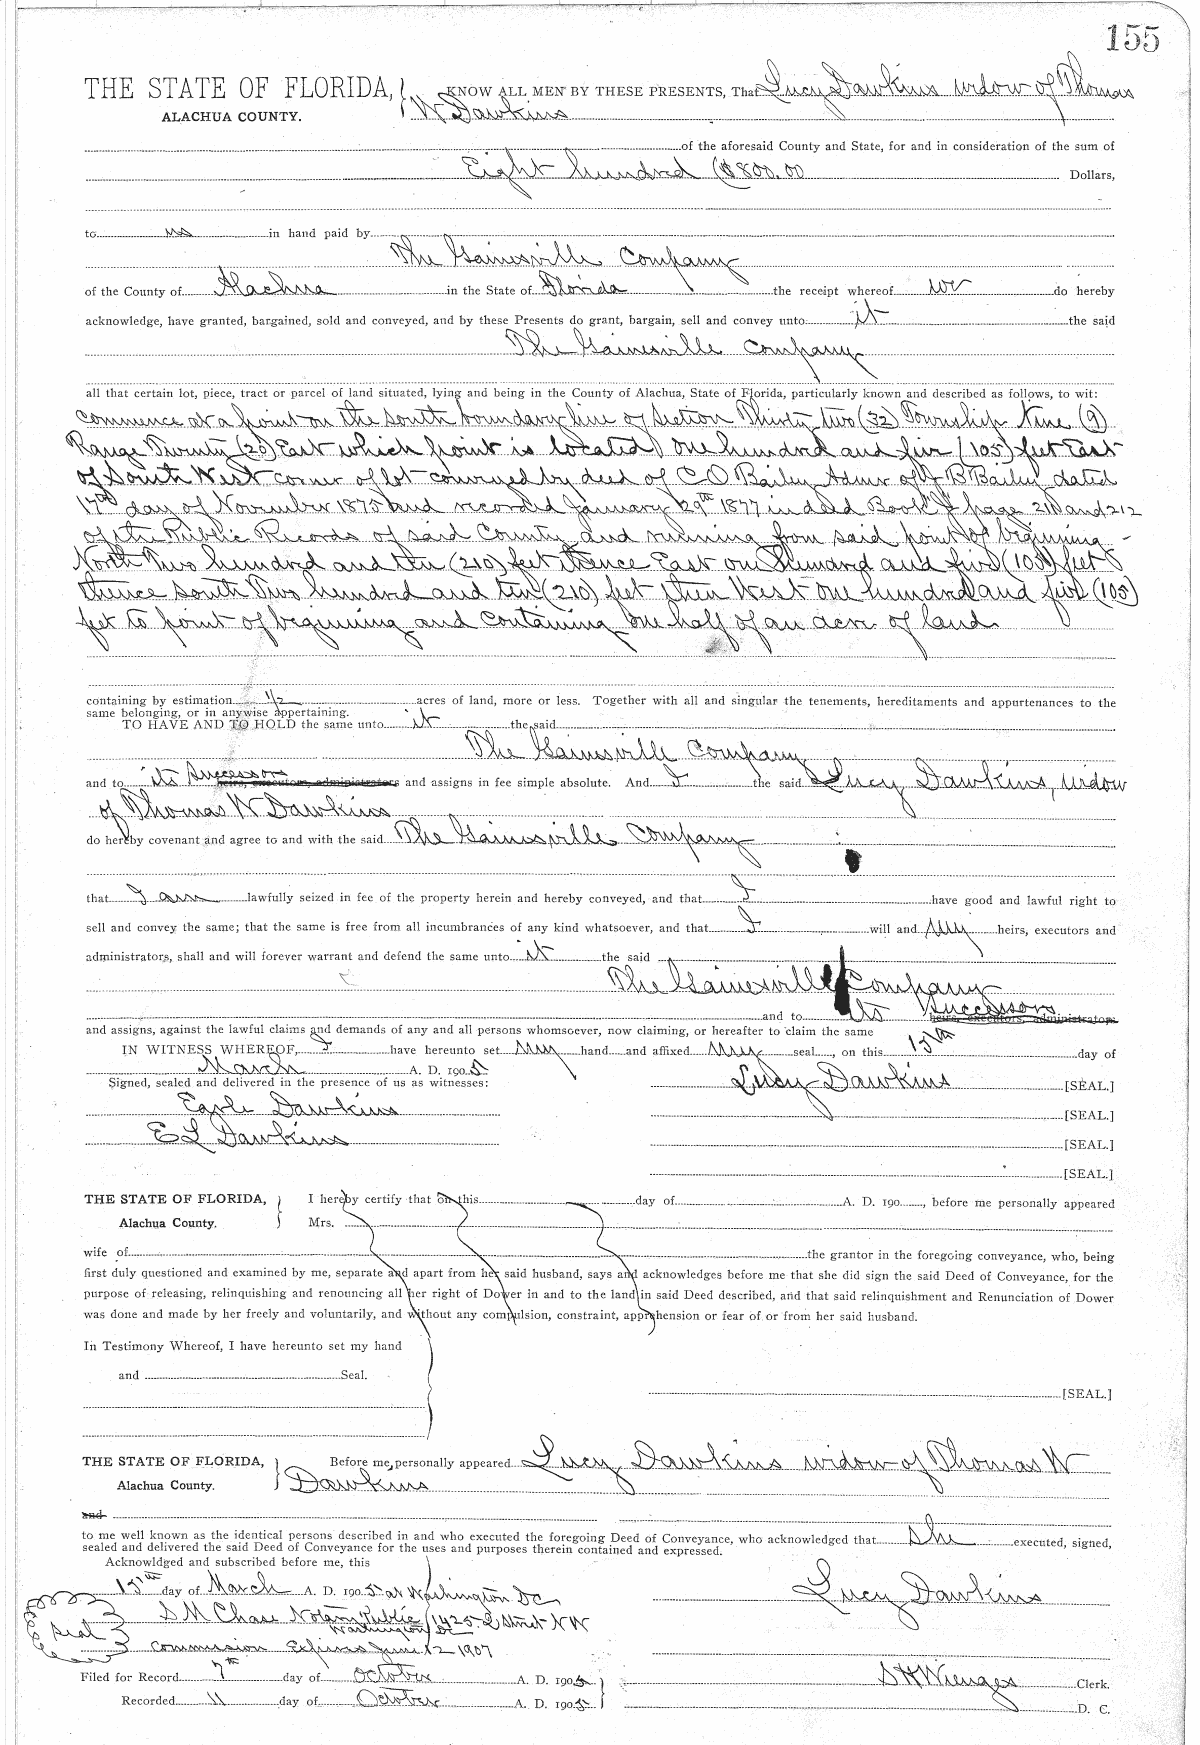 155
THE STATE OF FLORIDA, KNOW ALL MEN BY THESE PRESENTS, That Lucy Dawkins widow of Thomas
ALACHUA COUNTY. W Dawkins
of the aforesaid County and State, for and in consideration of the sum of
Eight hundred ($800.00 Dollars,
to us in hand paid by
The Gainesville Company
of the County of Alachua in the State of Florida the receipt whereof we do hereby
acknowledge, have granted, bargained, sold and conveyed, and by these Presents do grant, bargain, sell and convey unto it the said
The Gainesville Company
all that certain lot, piece, tract or parcel of land situated, lying and being in the County of Alachua, State of Florida, particularly known and described as follows, to wit:
Commence at a point on the south boundary line of Section Thirty two (32) Township Nine (9)
Range Twenty (20) East which point is located one hundred and five (105) feet East
of South West corner of lot conveyed by deed of C O Bailey Admr of J B Bailey dated
17th day of November 1875 and recorded January 29th 1877 in deed Book page 211 and 212
of the Public Records of said County and running from said point of beginning
North Two hundred and ten (210) feet thence East one hundred and five (105) feet
thence south Two hundred and ten (210) feet then West one hundred and five (105)
feet to point of beginning and containing one half of an acre of land.
containing by estimation 1/2 acres of land, more or less. Together with all and singular the tenements, hereditaments and appurtenances to the
same belonging, or in anywise appertaining.
TO HAVE AND TO HOLD the same unto it the said
The Gainesville Company
and to its Successors heirs, executors, administrators and assigns in fee simple absolute. And I the said Lucy Dawkins, widow
of Thomas W Dawkins
do hereby covenant and agree to and with the said The Gainesville Company
that I am lawfully seized in fee of the property herein and hereby conveyed, and that I have good and lawful right to
sell and convey the same; that the same is free from all incumbrances of any kind whatsoever, and that I will and My heirs, executors and
administrators, shall and will forever warrant and defend the same unto it the said
The Gainesville Company
and to its Successors heirs, executors, administrators
and assigns, against the lawful claims and demands of any and all persons whomsoever, now claiming, or hereafter to claim the same
IN WITNESS WHEREOF, I have hereunto set My hand and affixed My seal, on this 15th day of
March A. D. 1905
Signed, sealed and delivered in the presence of us as witnesses: Lucy Dawkins [SEAL.]
Earle Dawkins [SEAL.]
E L Dawkins [SEAL.]
[SEAL.]
THE STATE OF FLORIDA, I hereby certify that on this day of A. D. 190 , before me personally appeared
Alachua County. Mrs.
wife of the grantor in the foregoing conveyance, who, being
first duly questioned and examined by me, separate and apart from her said husband, says and acknowledges before me that she did sign the said Deed of Conveyance, for the
purpose of releasing, relinquishing and renouncing all her right of Dower in and to the land in said Deed described, and that said relinquishment and Renunciation of Dower
was done and made by her freely and voluntarily, and without any compulsion, constraint, apprehension or fear of or from her said husband.
In Testimony Whereof, I have hereunto set my hand
and Seal.
[SEAL.]
THE STATE OF FLORIDA, Before me, personally appeared Lucy Dawkins widow of Thomas W
Alachua County. Dawkins
and
to me well known as the identical persons described in and who executed the foregoing Deed of Conveyance, who acknowledged that She executed, signed,
sealed and delivered the said Deed of Conveyance for the uses and purposes therein contained and expressed.
Acknowldged and subscribed before me, this
15th day of March A. D. 1905 at Washington DC Lucy Dawkins
Seal S M Chase Notary Public 1425 L Street N W
Washington DC
Commission Expires June 12 1907
Filed for Record 7th day of October A. D. 1905 S H Wienges Clerk.
Recorded 11 day of October A. D. 1905 D. C.